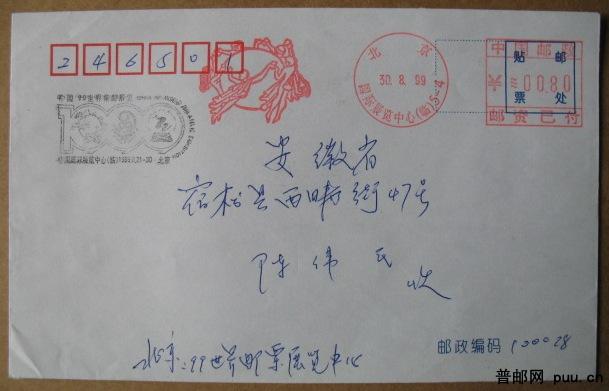 246501
中国'99世界集邮展览 CHINA'99 WORLD PHILATELIC EXHIBITION
中国国际展览中心(临)1999.8.21-30·北京
北京
30.8.99
国际展览中心(临)
中国邮政
00.80
邮资已付
贴邮
票处
安徽省
宿松县西畴街47号
陈伟民 收
北京:99世界邮票展览中心
邮政编码 100028
普邮网 puu.cn